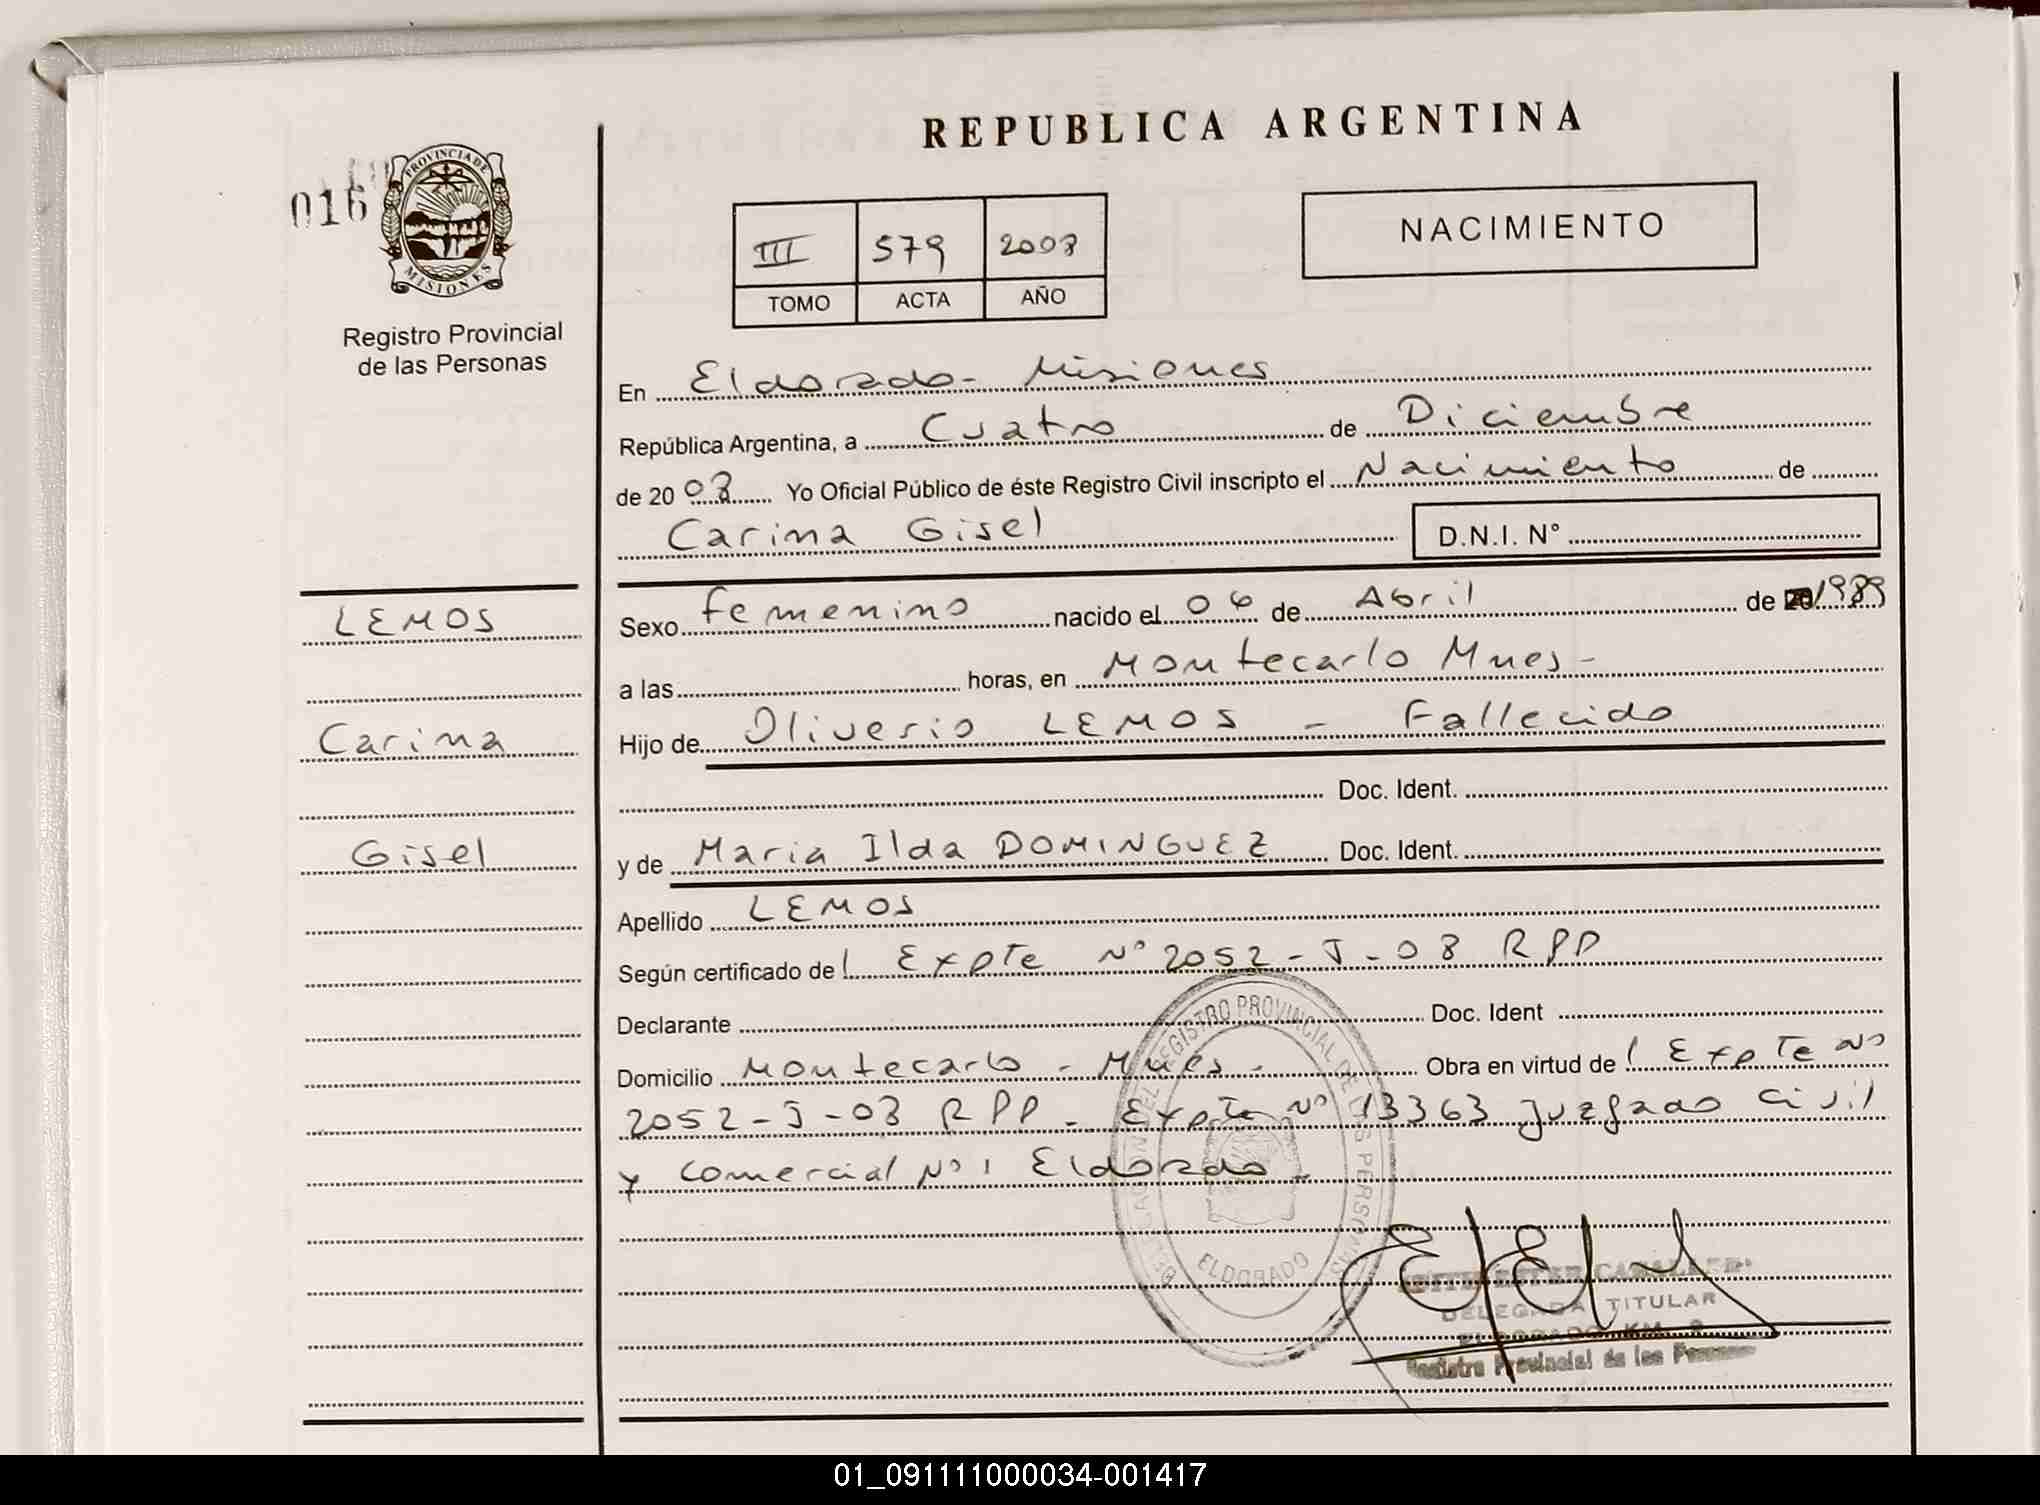 REPUBLICA ARGENTINA
016
PROVINCIA DE
MISIONES
Registro Provincial
de las Personas
III 579 2008
TOMO ACTA AÑO
NACIMIENTO
En Eldorado - Misiones
República Argentina, a Cuatro de Diciembre
de 20 08 Yo Oficial Público de éste Registro Civil inscripto el Nacimiento de
Carina Gisel D.N.I. Nº
LEMOS
Carina
Gisel
Sexo femenino nacido el 06 de Abril de 20 1989
a las horas, en Montecarlo Mnes -
Hijo de Oliverio LEMOS - Fallecido
Doc. Ident.
y de Maria Ilda DOMINGUEZ Doc. Ident.
Apellido LEMOS
Según certificado de Expte Nº 2052-J-08 RPP
Declarante Doc. Ident
Domicilio Montecarlo - Mnes - Obra en virtud de Expte Nº
2052-J-08 RPP - Expte Nº 13363 Juzgado Civil
y Comercial Nº 1 Eldorado -
REGISTRO PROVINCIAL DE LAS PERSONAS
ELDORADO
ESTER
DELEGADA TITULAR
ELDORADO KM. 9
Registro Provincial de las Personas
01_091111000034-001417